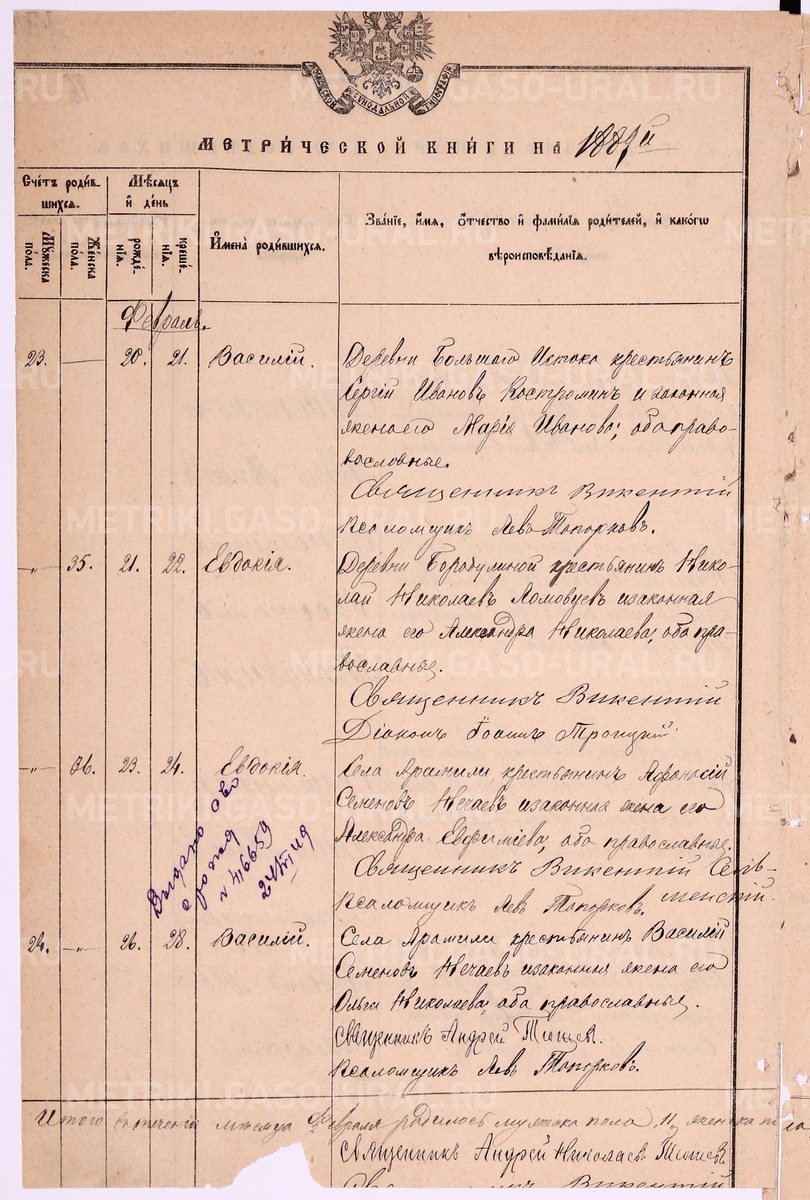 МЕТРИ́ЧЕСКОЙ КНИ́ГИ НА 1889й
Сче́тъ роди́в-
шихся.
Мѣсяцъ
и҆ де́нь
И҆мена̀ роди́вшихся.
Зва́нїе, и҆́мя, ѻ҆́тчество и҆ фами́лїя роди́телей, и҆ како́гѡ
вѣроисповѣ́данїя.
Мꙋ́жеска
по́ла.
Же́нска
по́ла.
рожде́-
нїя.
креще́-
нїя.
Февраль.
23. — 20. 21. Василій. Деревни Большаго Истока крестьянинъ
Сергій Ивановъ Костроминъ и законная
жена его Марія Иванова; оба право-
вославные.
Священникъ Викентій
Псаломщикъ Левъ Топорковъ.
-"- 35. 21. 22. Евдокія. Деревни Бородулиной крестьянинъ Нико-
лай Николаевъ Ломовцевъ и законная
жена его Александра Николаева; оба пра-
вославные.
Священникъ Викентій
Діаконъ Іоаннъ Троицкій.
-"- 36. 23. 24. Евдокія. Села Арамили крестьянинъ Афонасій
Семеновъ Нечаевъ и законная жена его
Александра Евфиміева, оба православные.
Священникъ Викентій Сель-
менскій.
Псаломщикъ Левъ Топорковъ.
Выдано сво
о рожд
№ 416659
24/XI 49
24. -"- 26. 28. Василій. Села Арамили крестьянинъ Василій
Семеновъ Нечаевъ и законная жена его
Ольга Николаева, оба православные.
Священникъ Андрей
Псаломщикъ Левъ Топорковъ.
Итого въ теченіи мѣсяца Февраля родилось мужеска пола 11, женска пола
Священникъ Андрей Николаевъ
Викентій